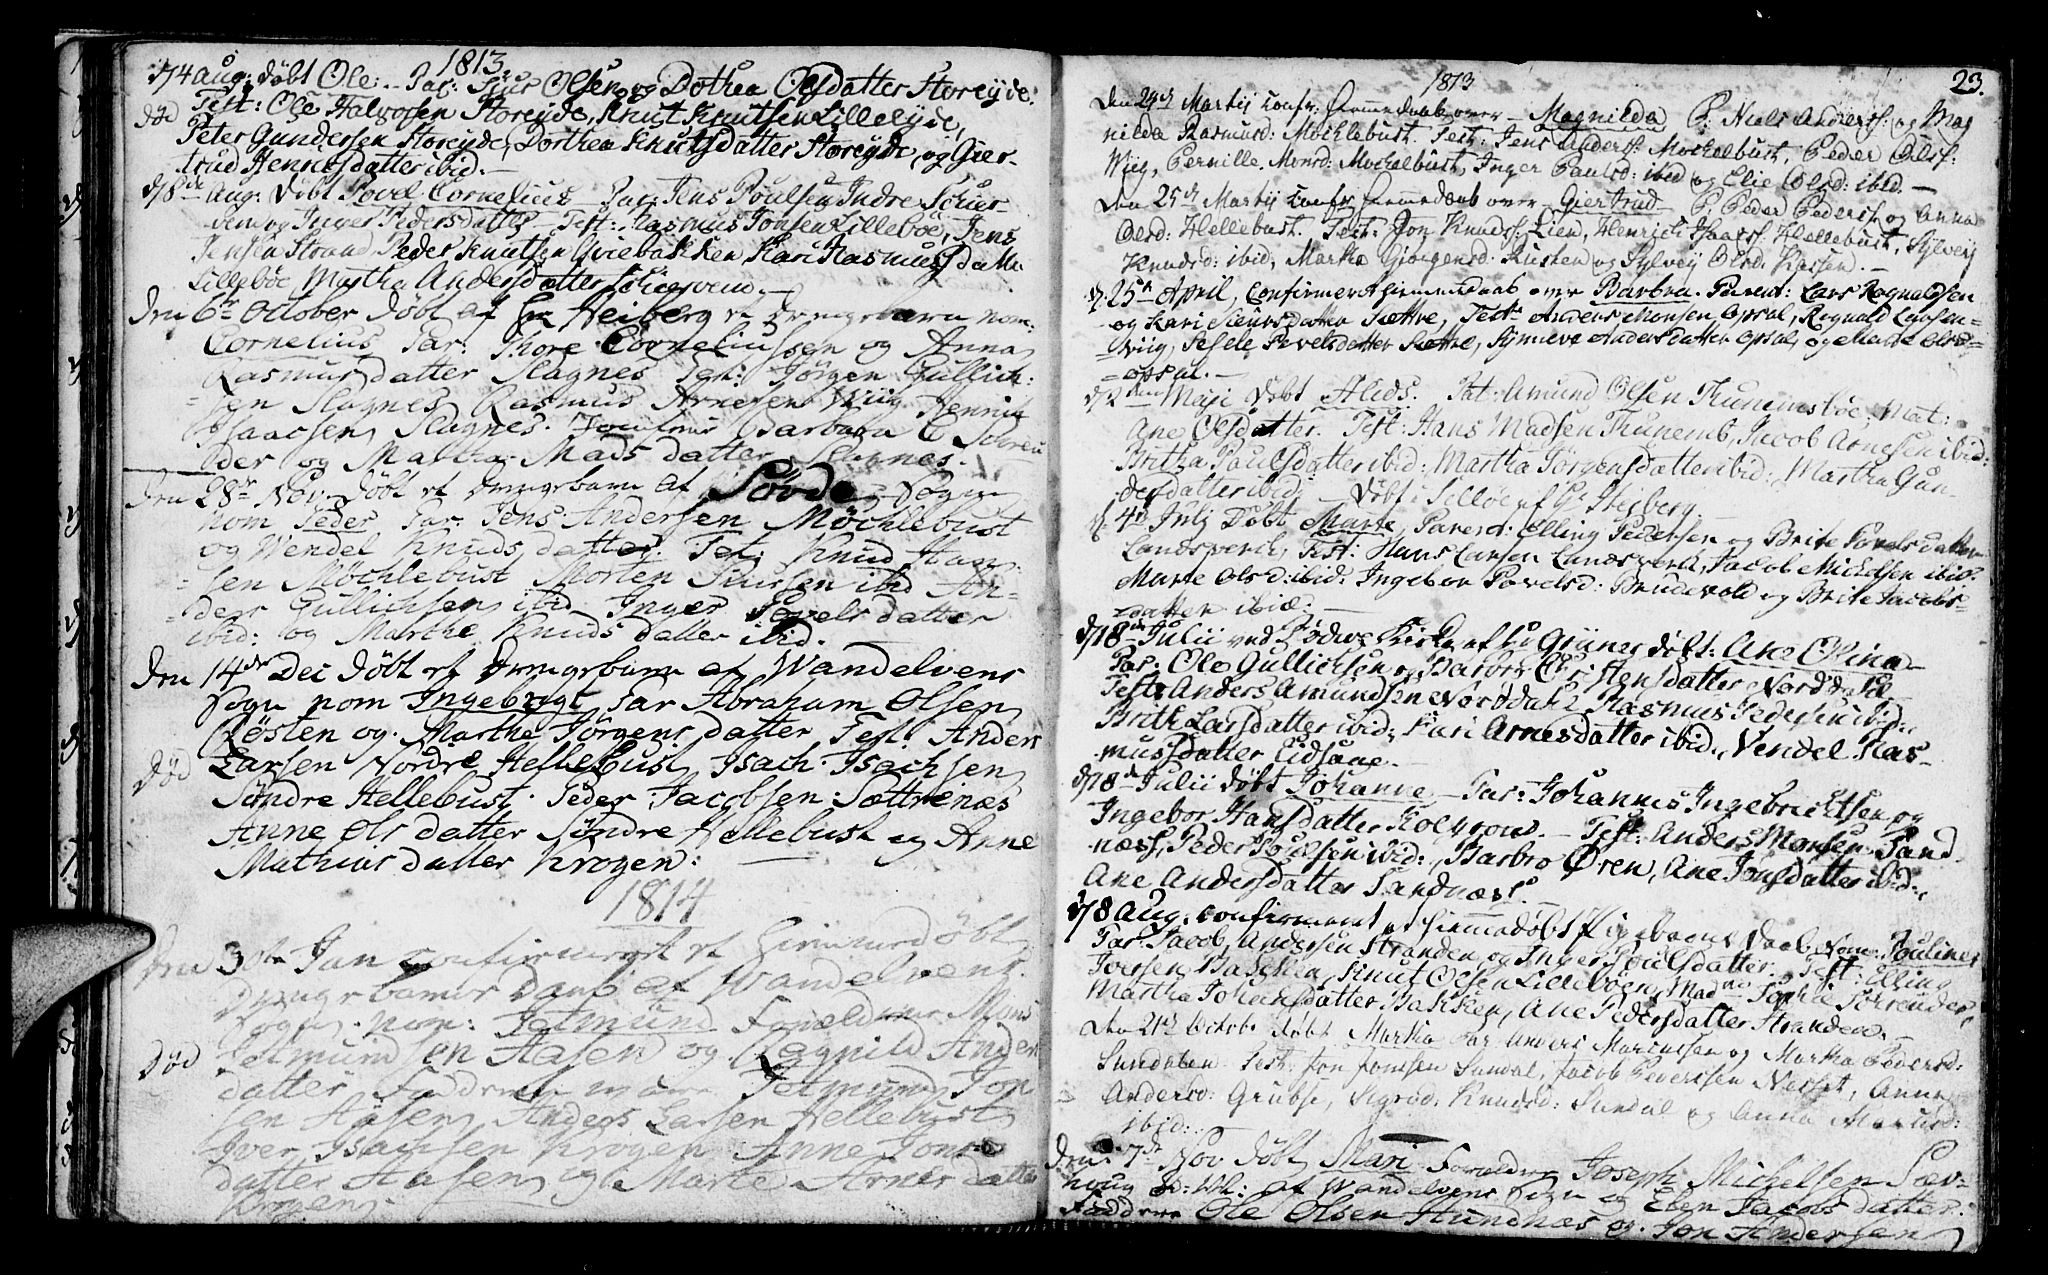 1813.
d/4 Aug: døbt Ole. Par: Siur Olsen og Dothea Olsdatter Storeyde.
død Test: Ole Halvorsen Storeyde, Knut Knutsen Lilleeyde,
Peter Gundersen Storeyde, Dorthea Knutsdatter Storeyde, og Gier-
trud Hennesdatter ibid. —
d/8de Aug: Døbt Povel Cornelius Par: Jens Poulsen Indre
og Inger Pedersdatter Test: Rasmus Jonsen Lillebøe, Jens
Jensen Strand, Peder Knutsen Qviebakken Kari Rasmusdatter
Lillebøe, Martha Andersdatter
Den 6te October døbt af Hr Heiberg et Drengebarn nom:
Cornelius Par: Thore Corneliussen og Anna
Rasmusdatter Slagnes Test: Jørgen Gullich-
sen Slagnes Rasmus Arnesen Wiig Henrik
Isaacsen Slagnes. Jomfrue Barbara C Schreu
der og Martha Mads datter Slagnes.
Den 28de Nov. døbt et Drengebarn af Søvde Sogn
nom Peder Par: Jens Andersen Møchlebust
og Wendel Knuds datter. Test: Knud Han
sen Møchlebust Morten Siursen ibid An-
ders Gullichsen ibid Inger Povels datter
ibid: og Marthe Knuds datter ibid.
Den 14de Dec døbt et Drengebarn af Wandelvens
Sogn nom Ingebrigt Par Abraham Olsen
Røsten og Marthe Jørgens datter Test: Anders
død Larsen Nordre Hellebust Isach Isachsen
Søndre Hellebust Peder Jacobsen Sættrenæs
Anne Ols datter Søndre Hellebust og Anne
Mathias datter Krogen:
1814
Den 30te Jan confirmeret et Hiemmedøbt
Drengebarns Daab af Wandelvens
Sogn nom: Jetmund Forældrene Mons
død Jetmundsen Aasen og Ragnild Anders
datter Fadderne vare Jetmund Jon
sen Aasen Anders Larsen Hellebust
Iver Isachsen Krogen Anne Jons
datter Aasen og Marte Arnes datter
Krogen
1813
23.
Den 24de Martij confr. hiemmedaab over Magnilda P: Niels Anders: og Mag
nilda Rasmusd: Mochlebust. Test: Jens Anders: Mochelbust, Peder Olss:
Wiig, Pernille Monsd: Mochelbust, Inger Paulsd: ibid og Elie Olsd: ibid. —
Den 25de Martij confr hiemmedaab over Giertrud P: Peder Peders: og Anna
Olsd: Hellebust. Test: Jon Knuds: Lien, Henrich Isaacs: Hellebust, Sylvey
Knudsd: ibid, Martha Giørgensd: Rusten og Sylvey Olsd: Aasen. —
d. 25de April, Confirmeret hiemmedaab over Barbra. Parent: Lars Ragnaldsen
og Kari Siursdatter Sættre, Test: Anders Monsen Opsal, Ragnald Larsen
Wiig, Sesele Povelsdatter Sættre, Synneve Andersdatter Opsal, og Marte Olsd
opsal. —
d/2den Maji døbt Aleds. Pat: Amund Olsen Thunemsbøe; Mat:
Ane Olsdatter. Test: Hans Madsen Thunemb, Jacob Arnesen ibid:
Britha Poulsdatter ibid: Martha Jørgensdatter ibid: Martha Gun-
dersdatter ibid; — Døbt i Selløe af Hr Heiberg.
d. 4de Julj Døbt Marte, Parent: Elling Pedersen og Brite Povelsdatter
Landsverk, Test: Hans Larsen Landsverk, Jacob Michelsen ibid:
Marte Olsd: ibid: Ingebor Povelsd: Brudevold og Brite Jacobs-
datter ibid: —
d/18de Julii ved Sødwe Kirke af Hr Gruner døbt: Ane Olina
Par: Ole Gullichsen og Barbro Christensdatter Norddahl
Test: Anders Amundsen Norddahl Rasmus Pedersen ibid:
Brith Larsdatter ibid; Kari Arnesdatter ibid:, Vendel Ras-
musdatter Eidsaae. —
d/18de Julii døbt Johanne — Par: Johannes Ingebrichtsen og
Ingebor Hansdatter — Test: Anders Monsen Sand
næss, Peder Poulsen ibid:, Barbro Øren, Ane Jonsdatter ibid:,
Ane Andersdatter Sandnæss.
d/8 Aug. confirmeret et hiemmedøbt Pigebarns Daab Nom: Pouline
Par. Jacob Andersen Stranden og Inger Poulsdatter. Test: Elling
Iversen Bakken, Knut Olsen Lillebøen, Madme Sophie Schreuder,
Martha Johansdatter Bakken, Ane Pedersdatter Stranden. —
Den 21de Octobr døbt Martha Par Anders Mariussen og Martha Pedersd:
Sundalen Test: Jon Jonssen Sundal, Jacob Severssen Nasset, Anne
Andersd: Grubse, Sigrid Knudsd: Sundal og Anna Mariusd:
ibid:
Den 7de Nov døbt Mari Forældre Joseph Michelsen Sæv-
houg af Wandelvens Sogn og Elen Jacobs datter
Faddere Ole Olsen Hundnæs og Jon Andersen